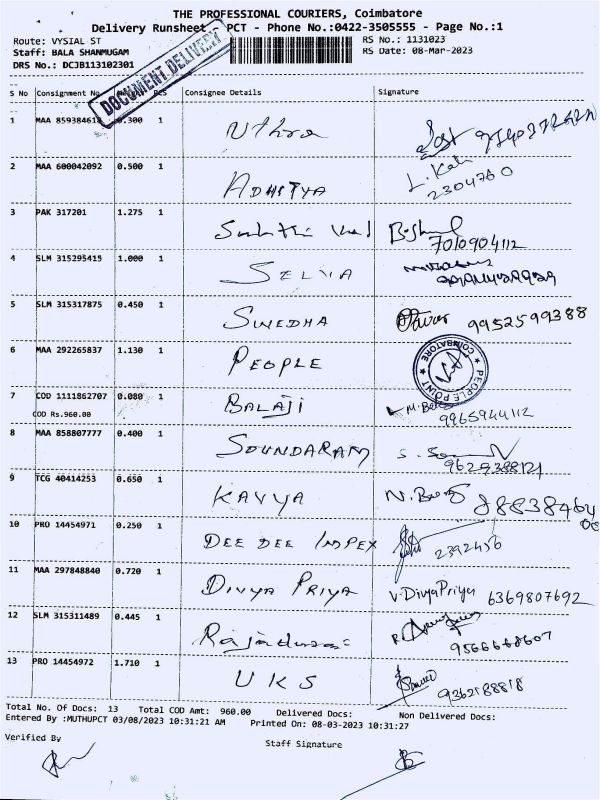 THE PROFESSIONAL COURIERS, Coimbatore
Delivery Runsheet - PCT - Phone No.:0422-3505555 - Page No.:1
Route: VYSIAL ST
RS No.: 1131023
Staff: BALA SHANMUGAM
RS Date: 08-Mar-2023
DRS No.: DCJB113102301
DOCUMENT DELIVERY
S No Consignment No. Weight PCS Consignee Details Signature
1 MAA 859384614 0.300 1 Nthra
2 MAA 600042092 0.500 1 ADHITYA L. Kal
2304760
3 PAK 317201 1.275 1
7010904112
4 SLM 315295415 1.000 1 SELVA
5 SLM 315317875 0.450 1 SWEDHA 9952599388
6 MAA 292265837 1.130 1 PEOPLE COIMBATORE PEOPLE POINT
7 COD 1111862707 0.080 1 BALAJI
COD Rs.960.00 9965944112
8 MAA 858807777 0.400 1 SOUNDARAM
9629388121
9 TCG 40414253 0.650 1 KAVYA
10 PRO 14454971 0.250 1 DEE DEE IMPEX 2392456
11 MAA 297848840 0.720 1 DIVYA PRIYA V.DivyaPriya 6369807692
12 SLM 315311489 0.445 1 Rajadurai
9566668607
13 PRO 14454972 1.710 1 UKS
9362188818
Total No. Of Docs: 13 Total COD Amt: 960.00 Delivered Docs: Non Delivered Docs:
Entered By :MUTHUPCT 03/08/2023 10:31:21 AM Printed On: 08-03-2023 10:31:27
Verified By
Staff Signature